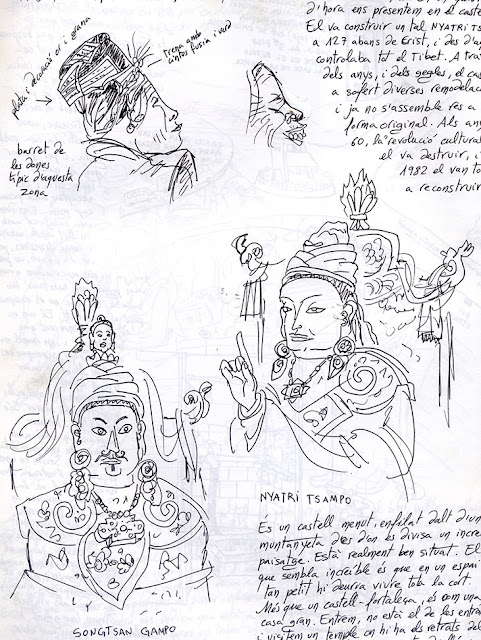 d'hora ens presentem en el caste
El va construir un tal NYATRI TS
a 127 abans de Crist, i des d'a
controlaba tot el Tibet. A tra
dels anys, i dels segles, el cas
a sofert diverses remodelac
i ja no s'assemble res a
forma original. Als any
60, la revolució cultural
el va destruir, i
1982 el van to
a reconstruir
plata i decoració or i grana
trena amb
cintes fusia i verd
barret de
les dones
típic d'aquesta
zona
NYATRI TSAMPO
És un castell menut, enfilat dalt d'un
muntanyeta des d'on es divisa un incre
paisatge. Està realment ben situat. El
que sembla increïble és que en un espai
tan petit hi deurra viure tota la cort.
Més que un castell-fortalesa, és com una
casa gran. Entrem, no està el de les entra
i visitem un temple on hi ha els retrats del
SONGTSAN GAMPO